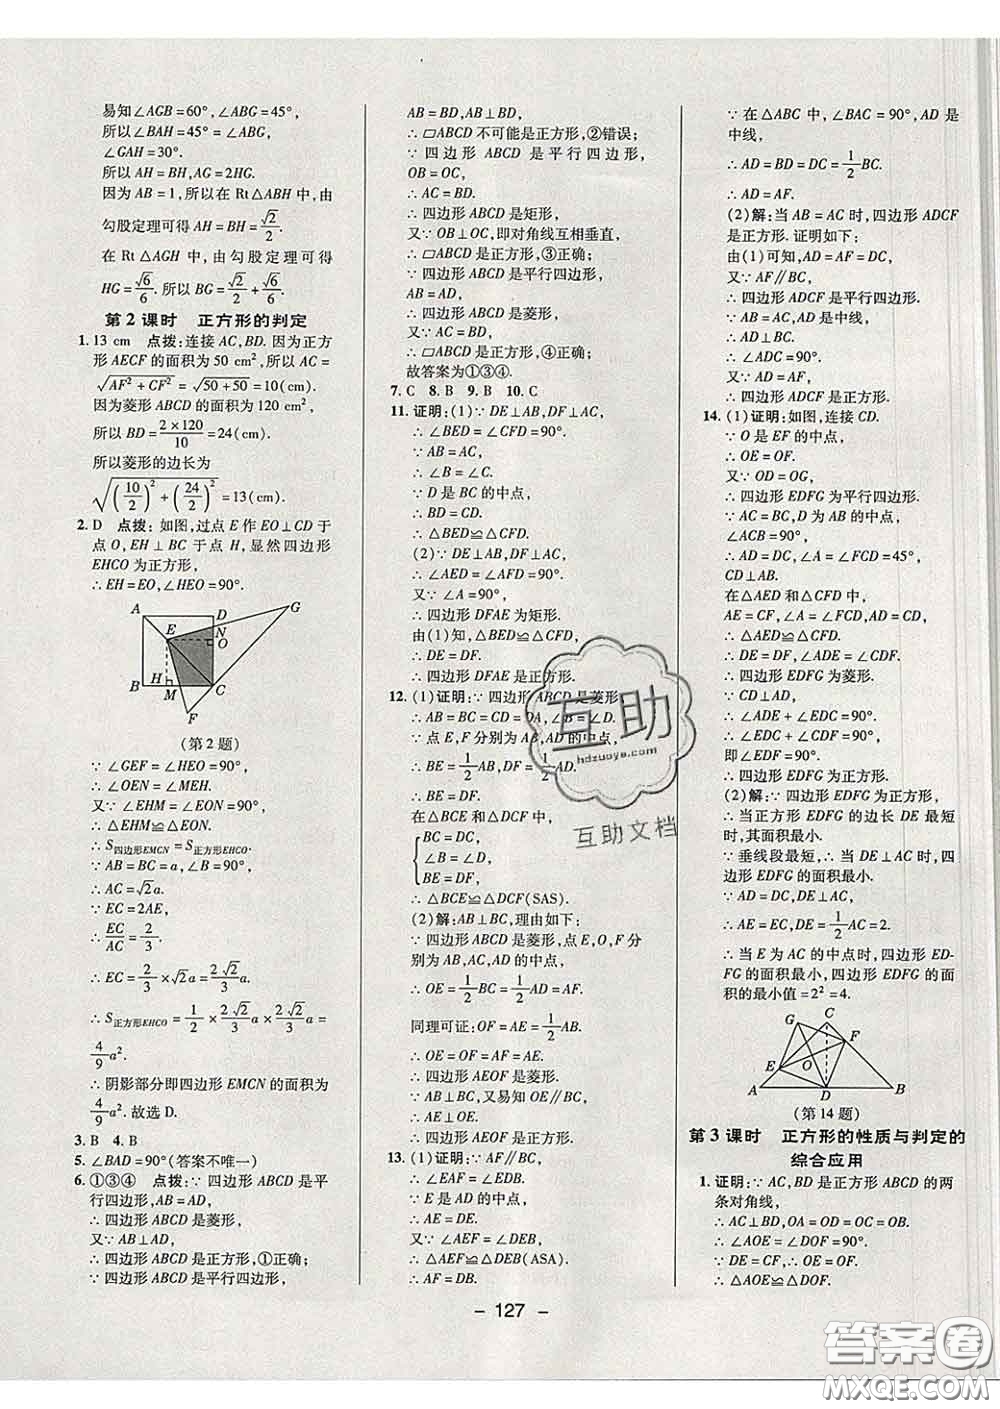 易知∠AGB=60°,∠ABG=45°,
所以∠BAH=45°=∠ABG,
∠GAH=30°.
所以AH=BH,AG=2HG.
因为AB=1,所以在Rt△ABH中,由
勾股定理可得AH=BH=√2/2.
在Rt△AGH中,由勾股定理可得
HG=√6/6. 所以BG=√2/2+√6/6.
第2课时 正方形的判定
1. 13 cm 点拨:连接AC,BD. 因为正方
形AECF的面积为50 cm²,所以AC=
√(AF²+CF²)=√(50+50)=10(cm).
因为菱形ABCD的面积为120 cm²,
所以BD=(2×120)/10=24(cm).
所以菱形的边长为
√((10/2)²+(24/2)²)=13(cm).
2. D 点拨:如图,过点E作EO⊥CD于
点O,EH⊥BC于点H,显然四边形
EHCO为正方形,
∴EH=EO,∠HEO=90°.
A D G E N O B H M C F
(第2题)
∵∠GEF=∠HEO=90°,
∴∠OEN=∠MEH.
又∵∠EHM=∠EON=90°,
∴△EHM≌△EON.
∴S四边形EMCN=S正方形EHCO.
∵AB=BC=a,∠B=90°,
∴AC=√2a.
∵EC=2AE,
∴EC/AC=2/3.
∴EC=2/3×√2a=2√2/3a.
∴S正方形EHCO=1/2×2√2/3a×2√2/3a=
4/9a².
∴阴影部分即四边形EMCN的面积为
4/9a². 故选D.
3. B 4. B
5. ∠BAD=90°(答案不唯一)
6. ①③④ 点拨:∵四边形ABCD是平
行四边形,AB=AD,
∴四边形ABCD是菱形,
又∵AB⊥AD,
∴四边形ABCD是正方形,①正确;
∵四边形ABCD是平行四边形,
AB=BD,AB⊥BD,
∴▱ABCD不可能是正方形,②错误;
∵四边形ABCD是平行四边形,
OB=OC,
∴AC=BD.
∴四边形ABCD是矩形,
又∵OB⊥OC,即对角线互相垂直,
∴▱ABCD是正方形,③正确;
∵四边形ABCD是平行四边形,
AB=AD,
∴四边形ABCD是菱形,
又∵AC=BD,
∴▱ABCD是正方形,④正确;
故答案为①③④.
7. C 8. B 9. B 10. C
11. 证明:(1)∵DE⊥AB,DF⊥AC,
∴∠BED=∠CFD=90°.
∵AB=AC,
∴∠B=∠C.
∵D是BC的中点,
∴BD=CD.
∴△BED≌△CFD.
(2)∵DE⊥AB,DF⊥AC,
∴∠AED=∠AFD=90°.
又∵∠A=90°,
∴四边形DFAE为矩形.
由(1)知,△BED≌△CFD,
∴DE=DF.
∴四边形DFAE是正方形.
12. (1)证明:∵四边形ABCD是菱形,
∴AB=BC=CD=DA,∠B=∠D.
∵点E,F分别为AB,AD的中点,
∴BE=1/2AB,DF=1/2AD.
∴BE=DF.
在△BCE和△DCF中,
BC=DC,
∠B=∠D,
BE=DF,
∴△BCE≌△DCF(SAS).
(2)解:AB⊥BC,理由如下:
∵四边形ABCD是菱形,点E,O,F分
别为AB,AC,AD的中点,
∴OE=1/2BC=1/2AD=AF.
同理可证:OF=AE=1/2AB.
∴OE=OF=AE=AF.
∴四边形AEOF是菱形.
∵AB⊥BC,又易知OE∥BC,
∴AE⊥OE.
∴四边形AEOF是正方形.
13. (1)证明:∵AF∥BC,
∴∠EAF=∠EDB.
∵E是AD的中点,
∴AE=DE.
∵∠AEF=∠DEB,
∴△AEF≌△DEB(ASA).
∴AF=DB.
∵在△ABC中,∠BAC=90°,AD是
中线,
∴AD=BD=DC=1/2BC.
∴AD=AF.
(2)解:当AB=AC时,四边形ADCF
是正方形. 证明如下:
由(1)可知,AF=DB=DC,
又∵AF∥BC,
∴四边形ADCF是平行四边形.
∵AB=AC,AD是中线,
∴AD⊥BC.
∴∠ADC=90°.
又∵AD=AF,
∴四边形ADCF是正方形.
14. (1)证明:如图,连接CD.
∵O是EF的中点,
∴OE=OF.
又∵OD=OG,
∴四边形EDFG是平行四边形.
∵AC=BC,D为AB的中点,
∠ACB=90°,
∴AD=DC,∠A=∠FCD=45°,
CD⊥AB.
在△AED和△CFD中,
AE=CF,∠A=∠FCD,AD=CD,
∴△AED≌△CFD.
∴DE=DF,∠ADE=∠CDF.
∴四边形EDFG为菱形.
∵CD⊥AD,
∴∠ADE+∠EDC=90°.
∴∠EDC+∠CDF=90°,
即∠EDF=90°.
∴四边形EDFG为正方形.
(2)解:∵四边形EDFG为正方形,
∴当正方形EDFG的边长DE最短
时,其面积最小.
∵垂线段最短,∴当DE⊥AC时,四
边形EDFG的面积最小.
∵AD=DC,DE⊥AC,
∴AE=EC,DE=1/2AC=2.
∴当E为AC的中点时,四边形ED-
FG的面积最小,四边形EDFG的面
积的最小值=2²=4.
G C F E O A D B
(第14题)
第3课时 正方形的性质与判定的
综合应用
1. 证明:∵AC,BD是正方形ABCD的两
条对角线,
∴AC⊥BD,OA=OD=OC=OB.
∴∠AOE=∠DOF=90°.
∵DE=CF,∴OE=OF.
∴△AOE≌△DOF.
- 127 -
互助
hdzuoye.com
互助文档
答案圈
MXQE.COM